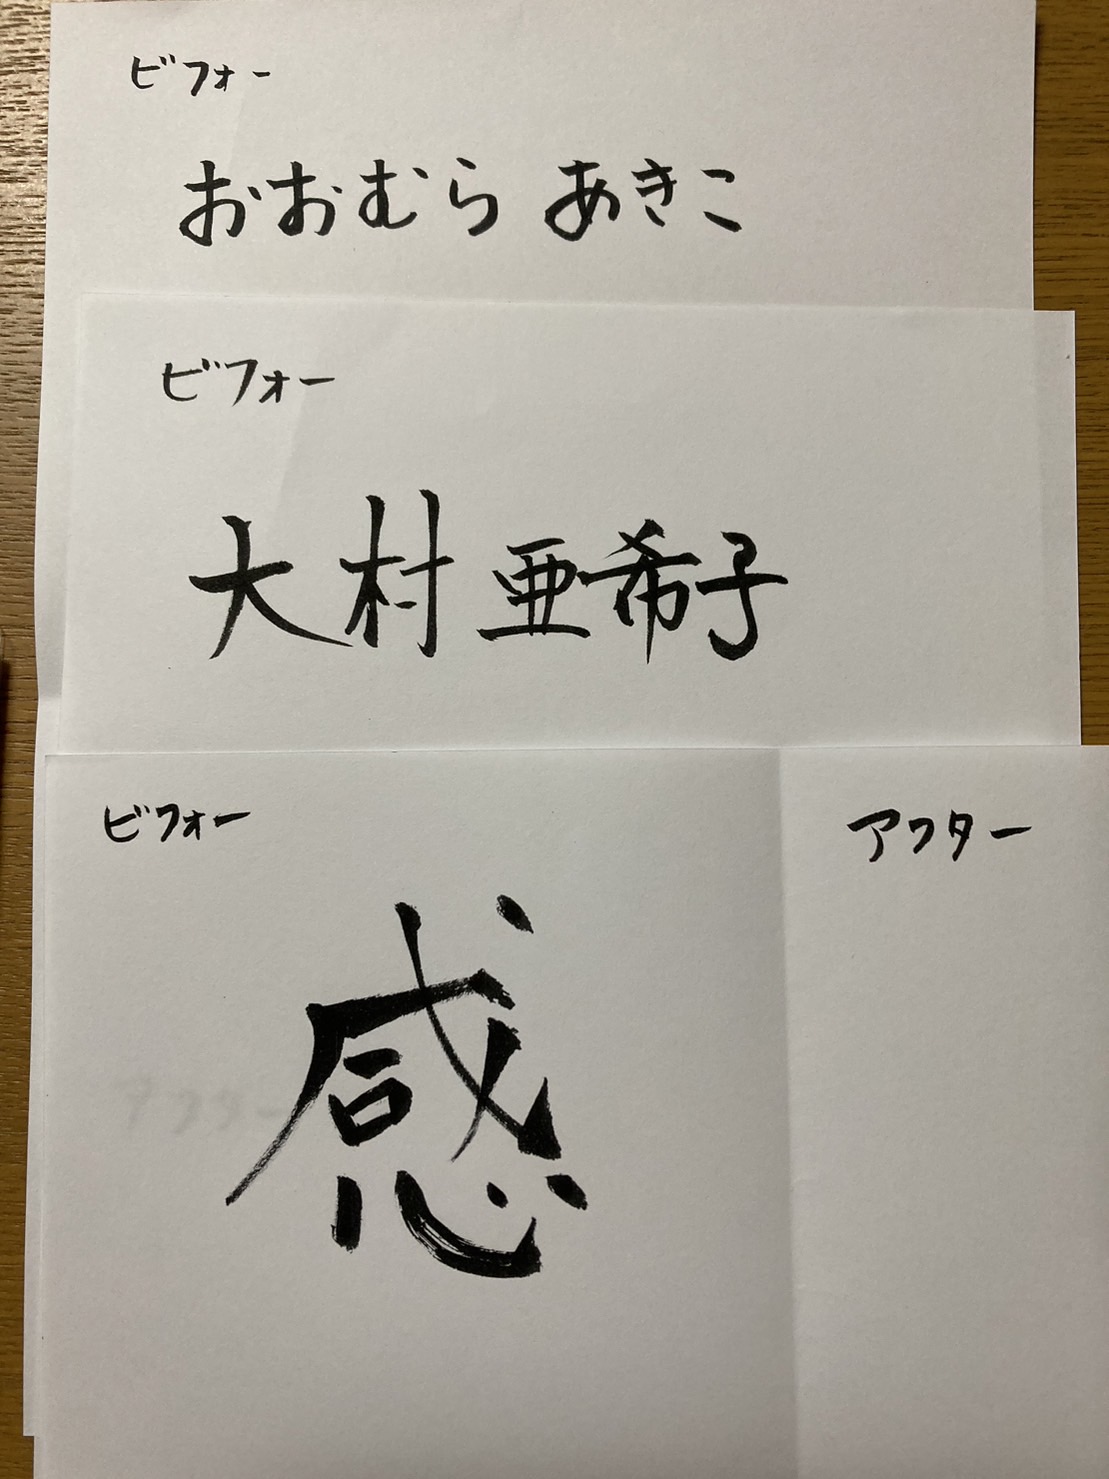 ビフォー
おおむら あきこ
ビフォー
大村 亜希子
ビフォー
アフター
感